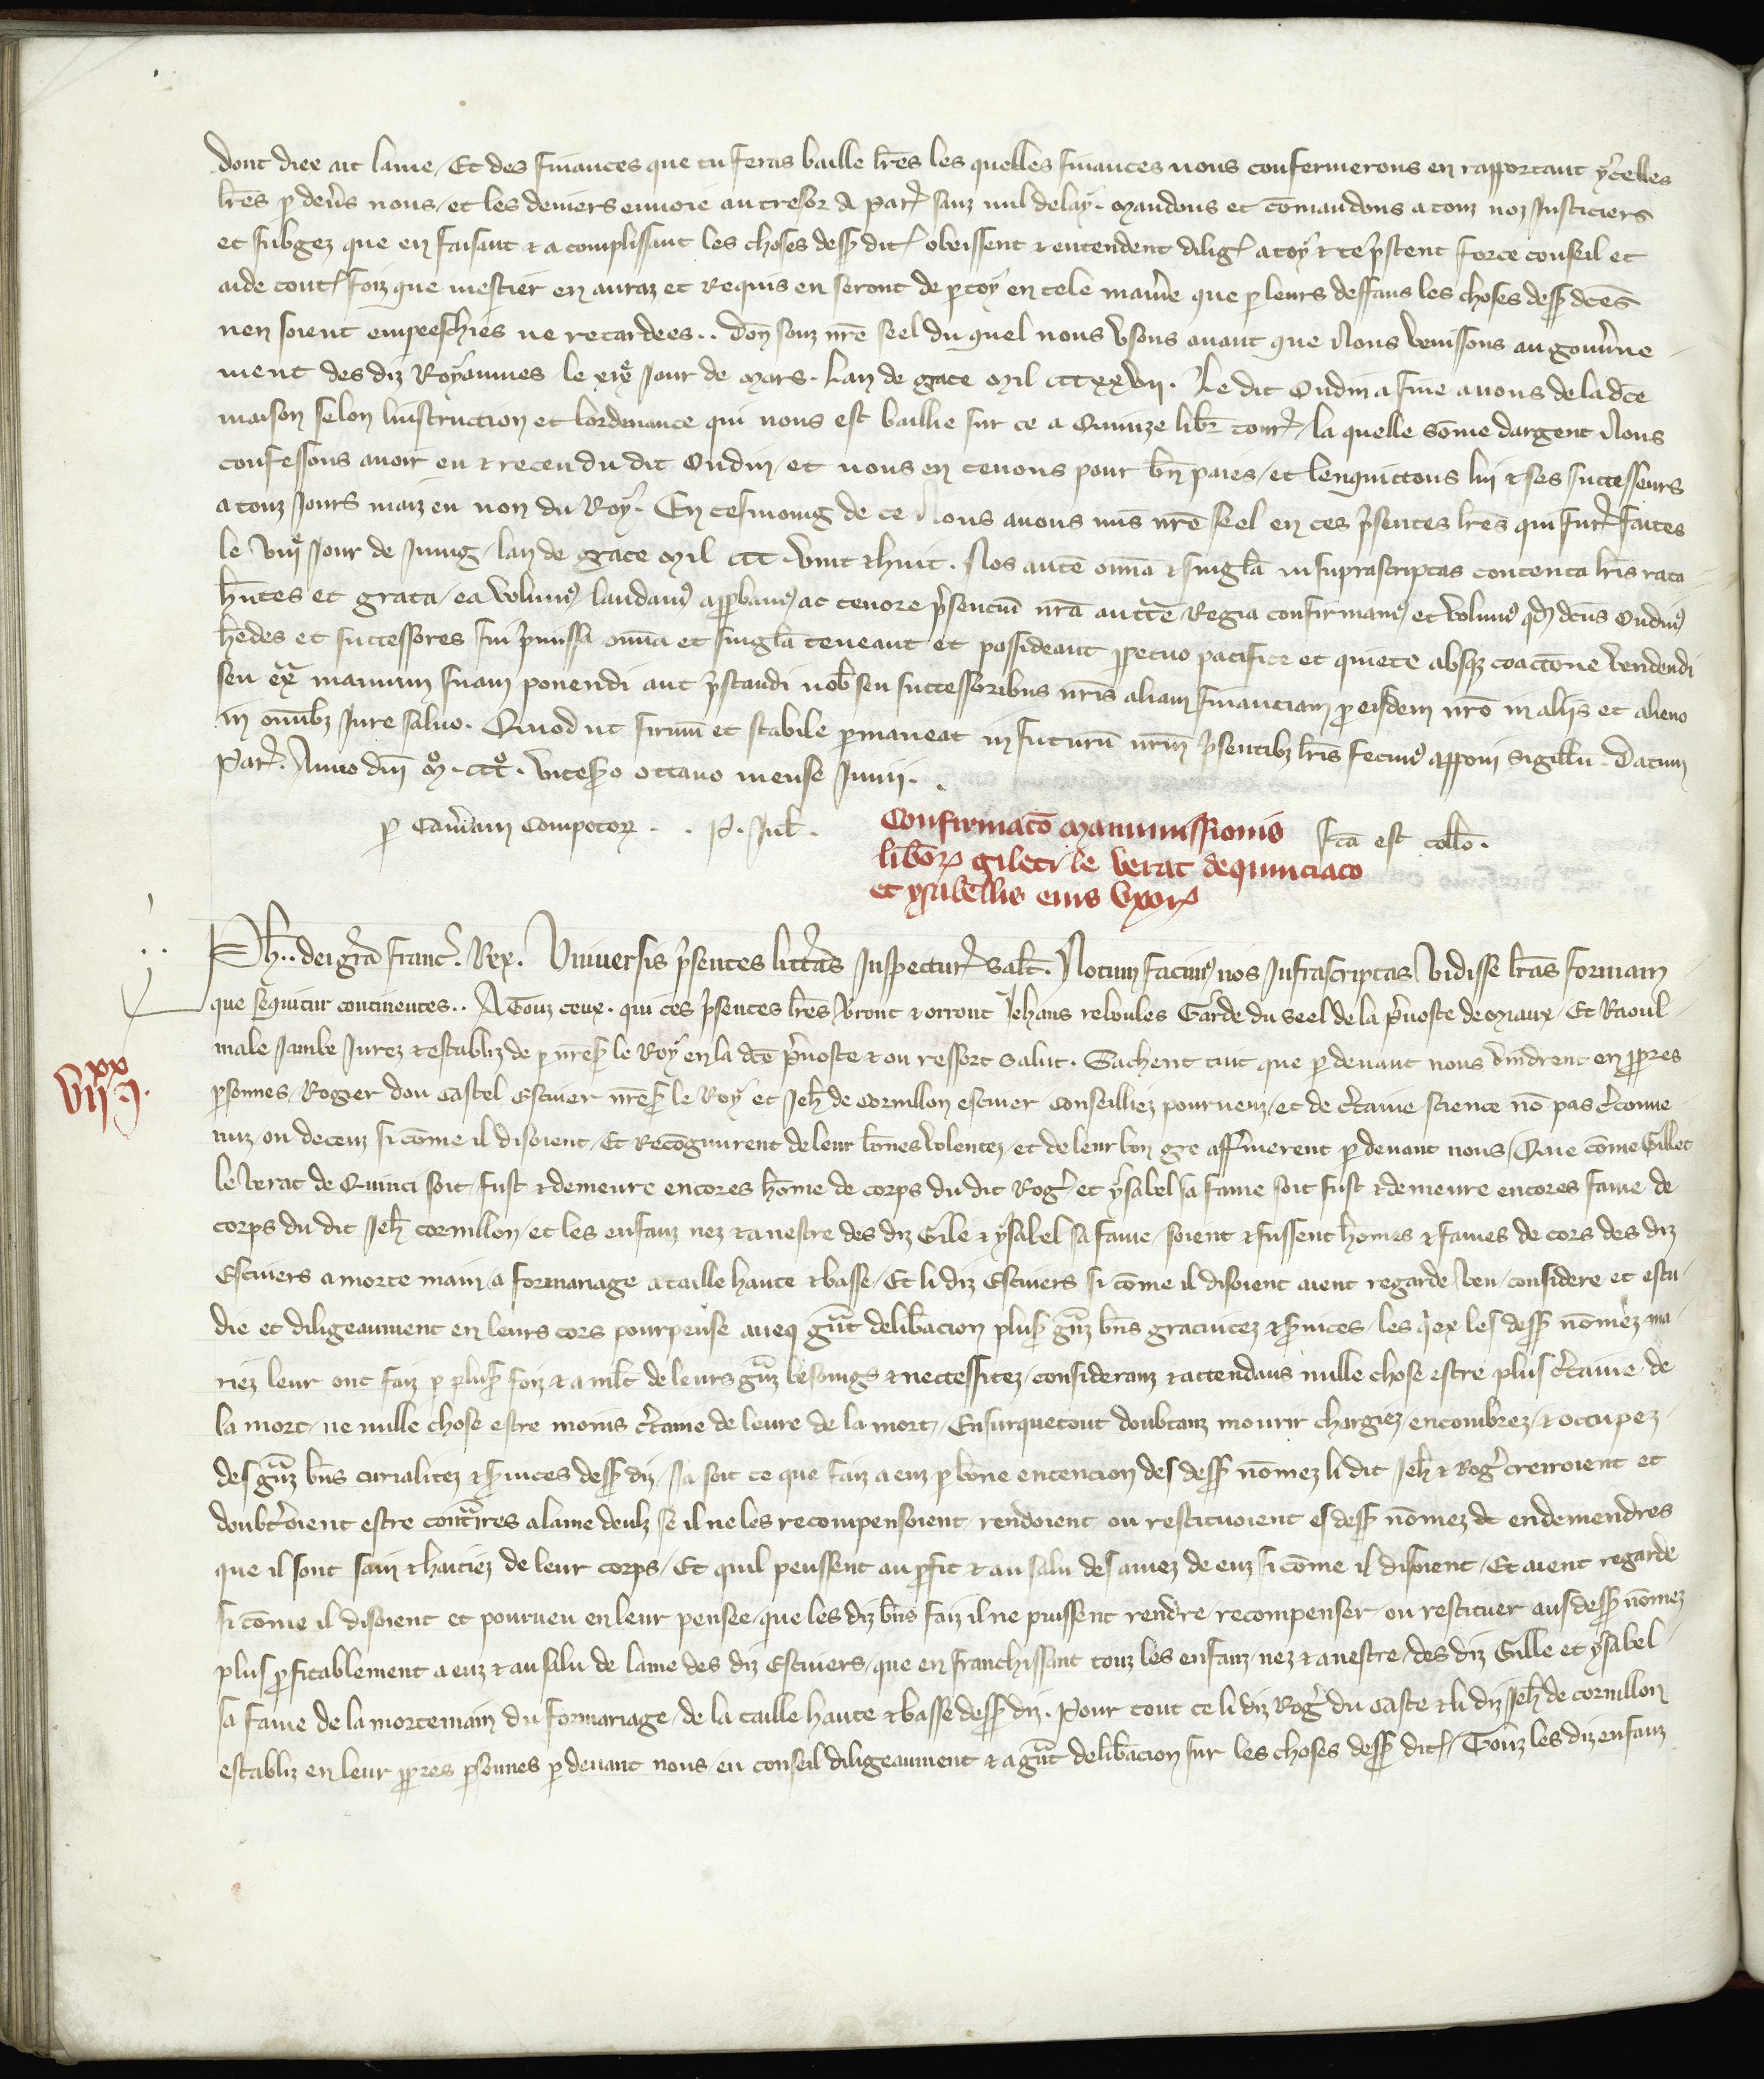 dont diex ait lame / Et des finances que tu feras baille lr̃es les quelles finances nous confermerons en rapportant ycelles
lr̃es p deũs nous / et les deniers enuoie au tresor a Par̃ sanz nul delay . Mandons et cõmandons a touz noz Justiciers
et subgez que en faisant & acomplissant les choses dess dit̃ obeissent & entendent dilig̃ a toy & te p̃stent force conseil et
aide tout̃ foiz que mestier en auraz et Requis en seront de p toy en tele manie᷑ que p leurs deffaus les choses dess dc̃es
nen soient empeeschies ne retardees .. Don̄ souz nr̃e seel du quel nous vsons auant que Nous venissons au gouũne
ment des diz Royaumes le xixe Jour de Mars . Lan de grace Mil CCCxxvii . Le dit Oudin a fine a nous de la dc̃e
maison selon linstruction et lordenance qui nous est baillie sur ce a Quinze libr̃ tour̃ / la quelle sõme dargent Nous
confessons auoir eu & receu du dit Oudin / et nous en tenons pour bn̄ paies / et lenquittons lui & ses successeurs
a touz Jours maiz eu non du Roy . En tesmoing de ce Nous auons mis nr̃e seel en ces p̃sentes lr̃es qui fur̃ faites
le viije Jour de Juing / lan de grace Mil CCC . vint & huit . Nos autẽ om̃ia & singl̃a in suprascriptas contenta lr̃is rata
hñtes et grata / ea volum9 / laudam9 approbam9 ac tenore p̃sentiũ nr̃a auctt̃e Regia confirmam9 et volum9 qd dc̃us Oudin9
h̃edes et successores sui p̃missa om̃ia et singl̃a teneant et possideant ppetuo pacifice et quiete absqz coactione vendendi
seu ex̃ manum suam ponendi aut p̃standi nob̃ seu successoribus nr̃is aliam financiam p eisdem nr̃o in aliis et alieno
in om̃ibz Jure saluo . Quod ut firmũ et stabile pmaneat in futurũ nr̃m p̃sentibz lr̃is fecim9 apponi sigillũ . Datum
Par̃ . Anno dñi Mo . CCCo . vicesĩo octauo mense Junii .
p Cam̃am Compotoꝝ . . P. Jul̃ .
Confirmac̃o manumissionis
liberoꝝ gileti le Verat de quinciaco
et ysabellis eius vxoꝝ
fc̃a est coll̃o .
Ph̃ .. dei gr̃a franc̃ . Rex . Vniuersis p̃sentes litt̃as Inspectur̃ sal̃t . Notum facim9 nos Infrascriptas vidisse lr̃as formam
que sequitur continentes .. A Touz ceux . qui ces p̃sentes lr̃es ṽront & orront Jehans reboules Garde du seel de la p̃uoste de Miaux / Et Raoul
male Jambe Jurez & establiz de p nr̃es̃ le Roy en la dc̃e p̃uoste & ou ressort salut . Sachent tuit que p deuant nous vindrent en ppres
psonnes / Rogier dou Castel Escuier nr̃es̃ le Roy et Jeh̃ de Cornillon escuier Conseilliez pourueuz / et de c̃taine science nõ pas c̃conue
nuz / ou deceuz si cõme il disoient / Et Recõgnurent de leur bõnes volentez / et de leur bon gre aff̃merent p deuant nous / Que cõme Gillet
le verat de Quinci soit / fust & demeure encores hõme de corps du dit Rog̃ / et ysabel sa fame soit fust & demeure encores fame de
corps du dit Jeh̃ cornillon / et les enfanz nez & a nestre des diz Gile & ysabel sa fame / soient & fussent hõmes & fames de cors des diz
Escuiers a morte main / a formariage a taille haute & basse / Et li diz Escuiers si cõme il disoient aient regarde / veu / considere et estu
die et diligeaument en leurs cors pourpense aueq gñt delib̃acion plus̃ gñz bñs gratuitez & s̃uices / les q̃ex les dess nõmez ma
riez leur ont faiz p plus̃ foiz & a mlt̃ de leurs gñz besoings & neccessitez / consideranz & attendans nulle chose estre plus c̃taine de
la mort / ne nulle chose estre moins c̃taine de leure de la mort / Ensurquetout doubtanz mourir chargiez / encombrez / & occupez
des gñz bñs curialitez & s̃uices dess diz / Ja soit ce que faiz a euz p bõne entencion des dess nõmez li dit Jeh̃ & Rog̃ creiroient et
doubt̃oient estre cont̃ires a lame deulz se il ne les recompensoient / rendoient ou restituoient es dess nõmez de endemendres
que il sont sain & haitiez de leur corps / Et quil peussent au pfit & au salu des amez de euz si cõme il disoient / Et aient regarde
si cõme il disoient et pourueu en leur pensee / que les diz bñs faiz il ne puissent rendre recompenser / ou restituer aus dess nõmez
plus pfitablement a euz & au salu de lame des diz Escuiers / que en franchissant touz les enfanz / nez & a nestre / des diz Gille et ysabel
sa fame de la mortemain du formariage / de la taille haute & basse dess diz . Pour tout ce li diz Rog̃ du Caste & li diz Jeh̃ de cornillon
establiz en leur ppres psonnes p deuant nous / eu conseil diligeaument & a gñt delib̃acion sur les choses dess dit̃ / Touz les diz enfanz
xx
vii j.